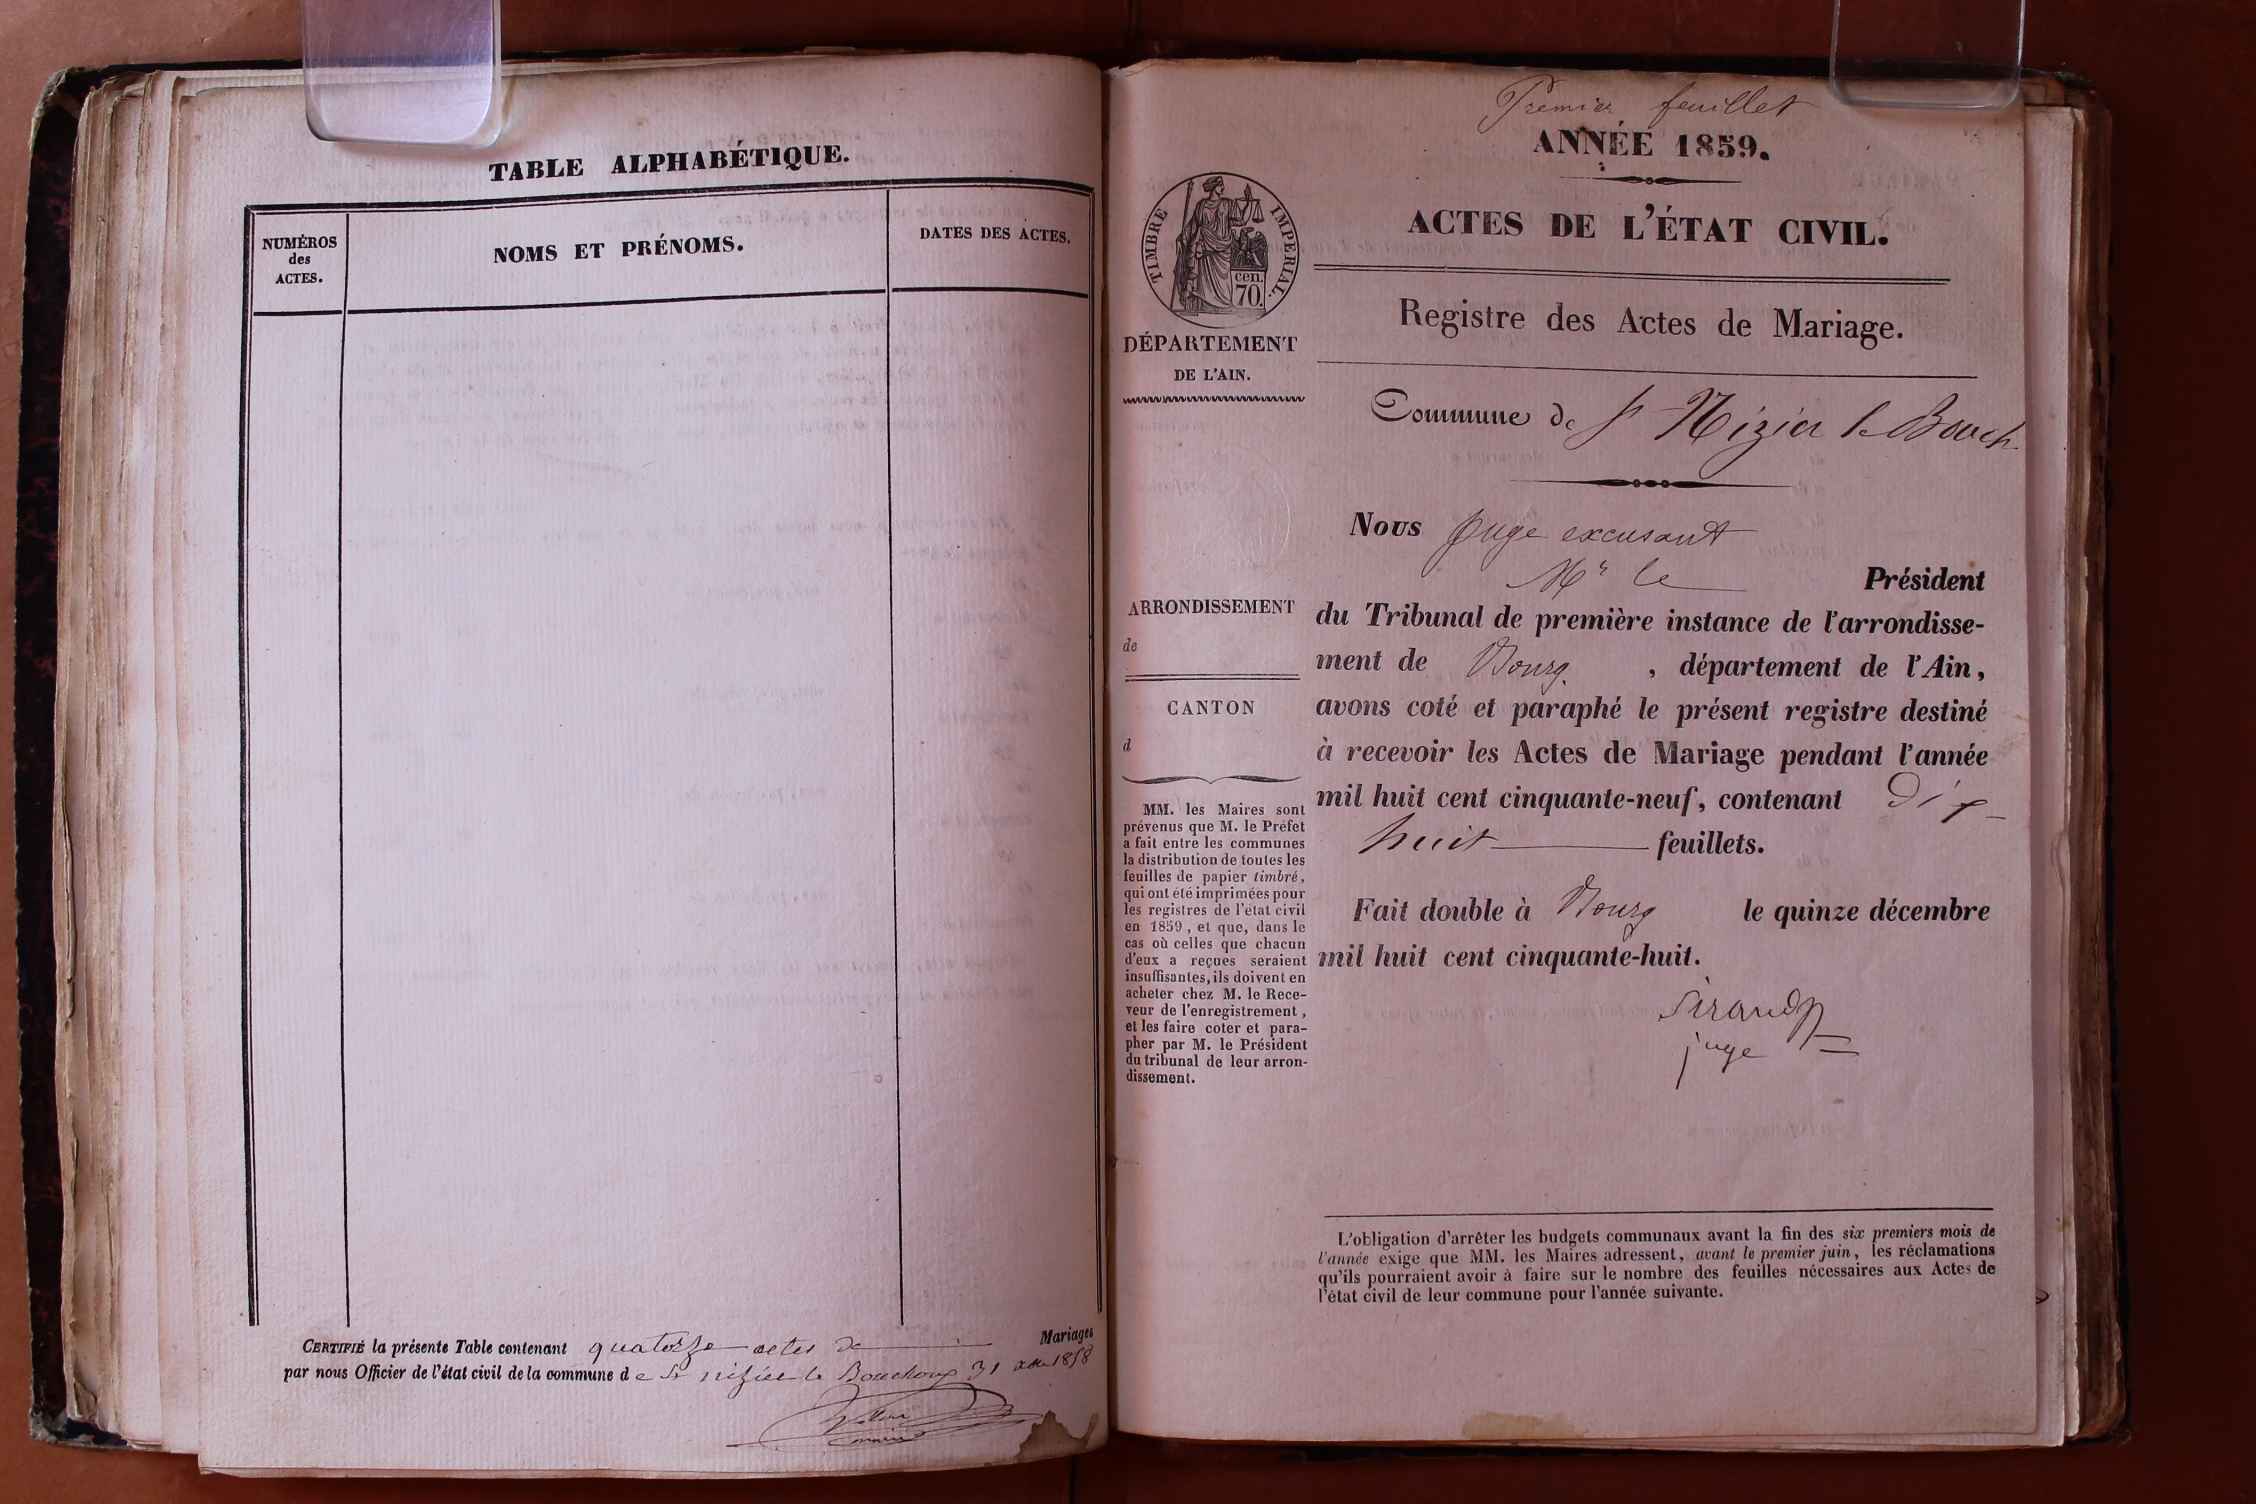 TABLE ALPHABÉTIQUE.
NUMÉROS
des
ACTES.
NOMS ET PRÉNOMS.
DATES DES ACTES.
CERTIFIÉ la présente Table contenant quatorze actes de Mariages
par nous Officier de l'état civil de la commune de St nizier le Bouchoux 31 Xbre 1858
Premier feuillet
ANNÉE 1859.
ACTES DE L'ÉTAT CIVIL.
Registre des Actes de Mariage.
TIMBRE IMPERIAL.
cen.
70.
DÉPARTEMENT
DE L'AIN.
ARRONDISSEMENT
de
CANTON
d
MM. les Maires sont
prévenus que M. le Préfet
a fait entre les communes
la distribution de toutes les
feuilles de papier timbré,
qui ont été imprimées pour
les registres de l'état civil
en 1859, et que, dans le
cas où celles que chacun
d'eux a reçues seraient
insuffisantes, ils doivent en
acheter chez M. le Rece-
veur de l'enregistrement,
et les faire coter et para-
pher par M. le Président
du tribunal de leur arron-
dissement.
Commune de St Nizier le Bouch.
Nous Juge excusant
Mr le Président
du Tribunal de première instance de l'arrondisse-
ment de Bourg, département de l'Ain,
avons coté et paraphé le présent registre destiné
à recevoir les Actes de Mariage pendant l'année
mil huit cent cinquante-neuf, contenant Dix-
huit feuillets.
Fait double à Bourg le quinze décembre
mil huit cent cinquante-huit.
Sirand
juge
L'obligation d'arrêter les budgets communaux avant la fin des six premiers mois de
l'année exige que MM. les Maires adressent, avant le premier juin, les réclamations
qu'ils pourraient avoir à faire sur le nombre des feuilles nécessaires aux Actes de
l'état civil de leur commune pour l'année suivante.